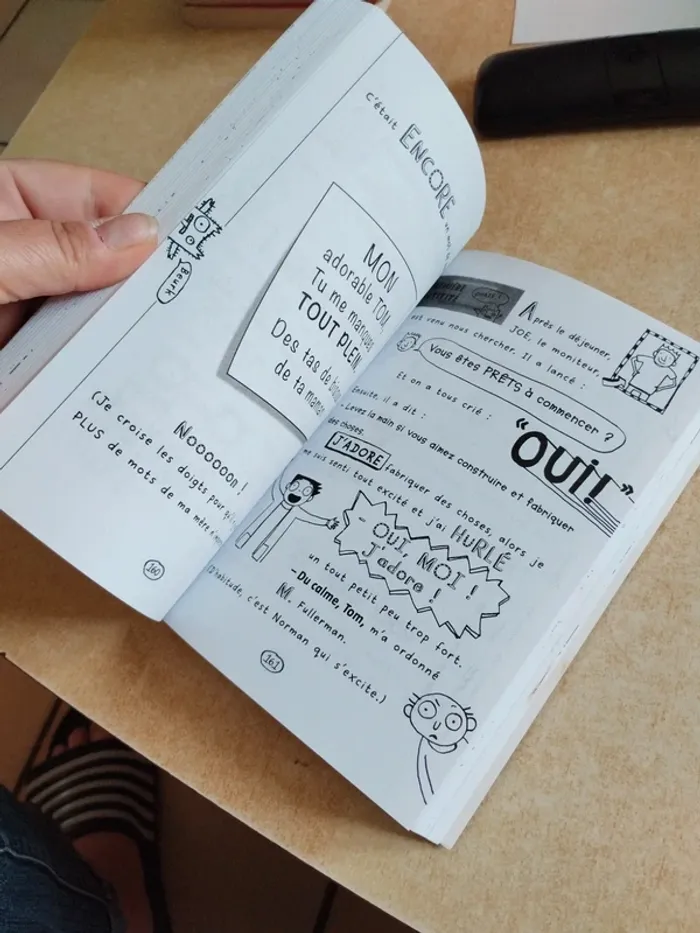 C'était ENCORE un mot
MON
adorable TOM,
Tu me manques
TOUT PLEIN
Des tas de
de ta maman
Beurk
Noooooon !
(Je croise les doigts pour
PLUS de mots de ma mère
160
Après le déjeuner,
JOE, le moniteur,
est venu nous chercher. Il a lancé :
Vous êtes PRÊTS à commencer ?
Et on a tous crié :
"OUi!"
Ensuite, il a dit :
- Levez la main si vous aimez construire et fabriquer
des choses.
J'ADORE fabriquer des choses, alors je
me suis senti tout excité et j'ai HURLÉ
- OUI, MOI !
J'adore !
un tout petit peu trop fort.
–Du calme, Tom, m'a ordonné
M. Fullerman.
d'habitude, c'est Norman qui s'excite.)
161